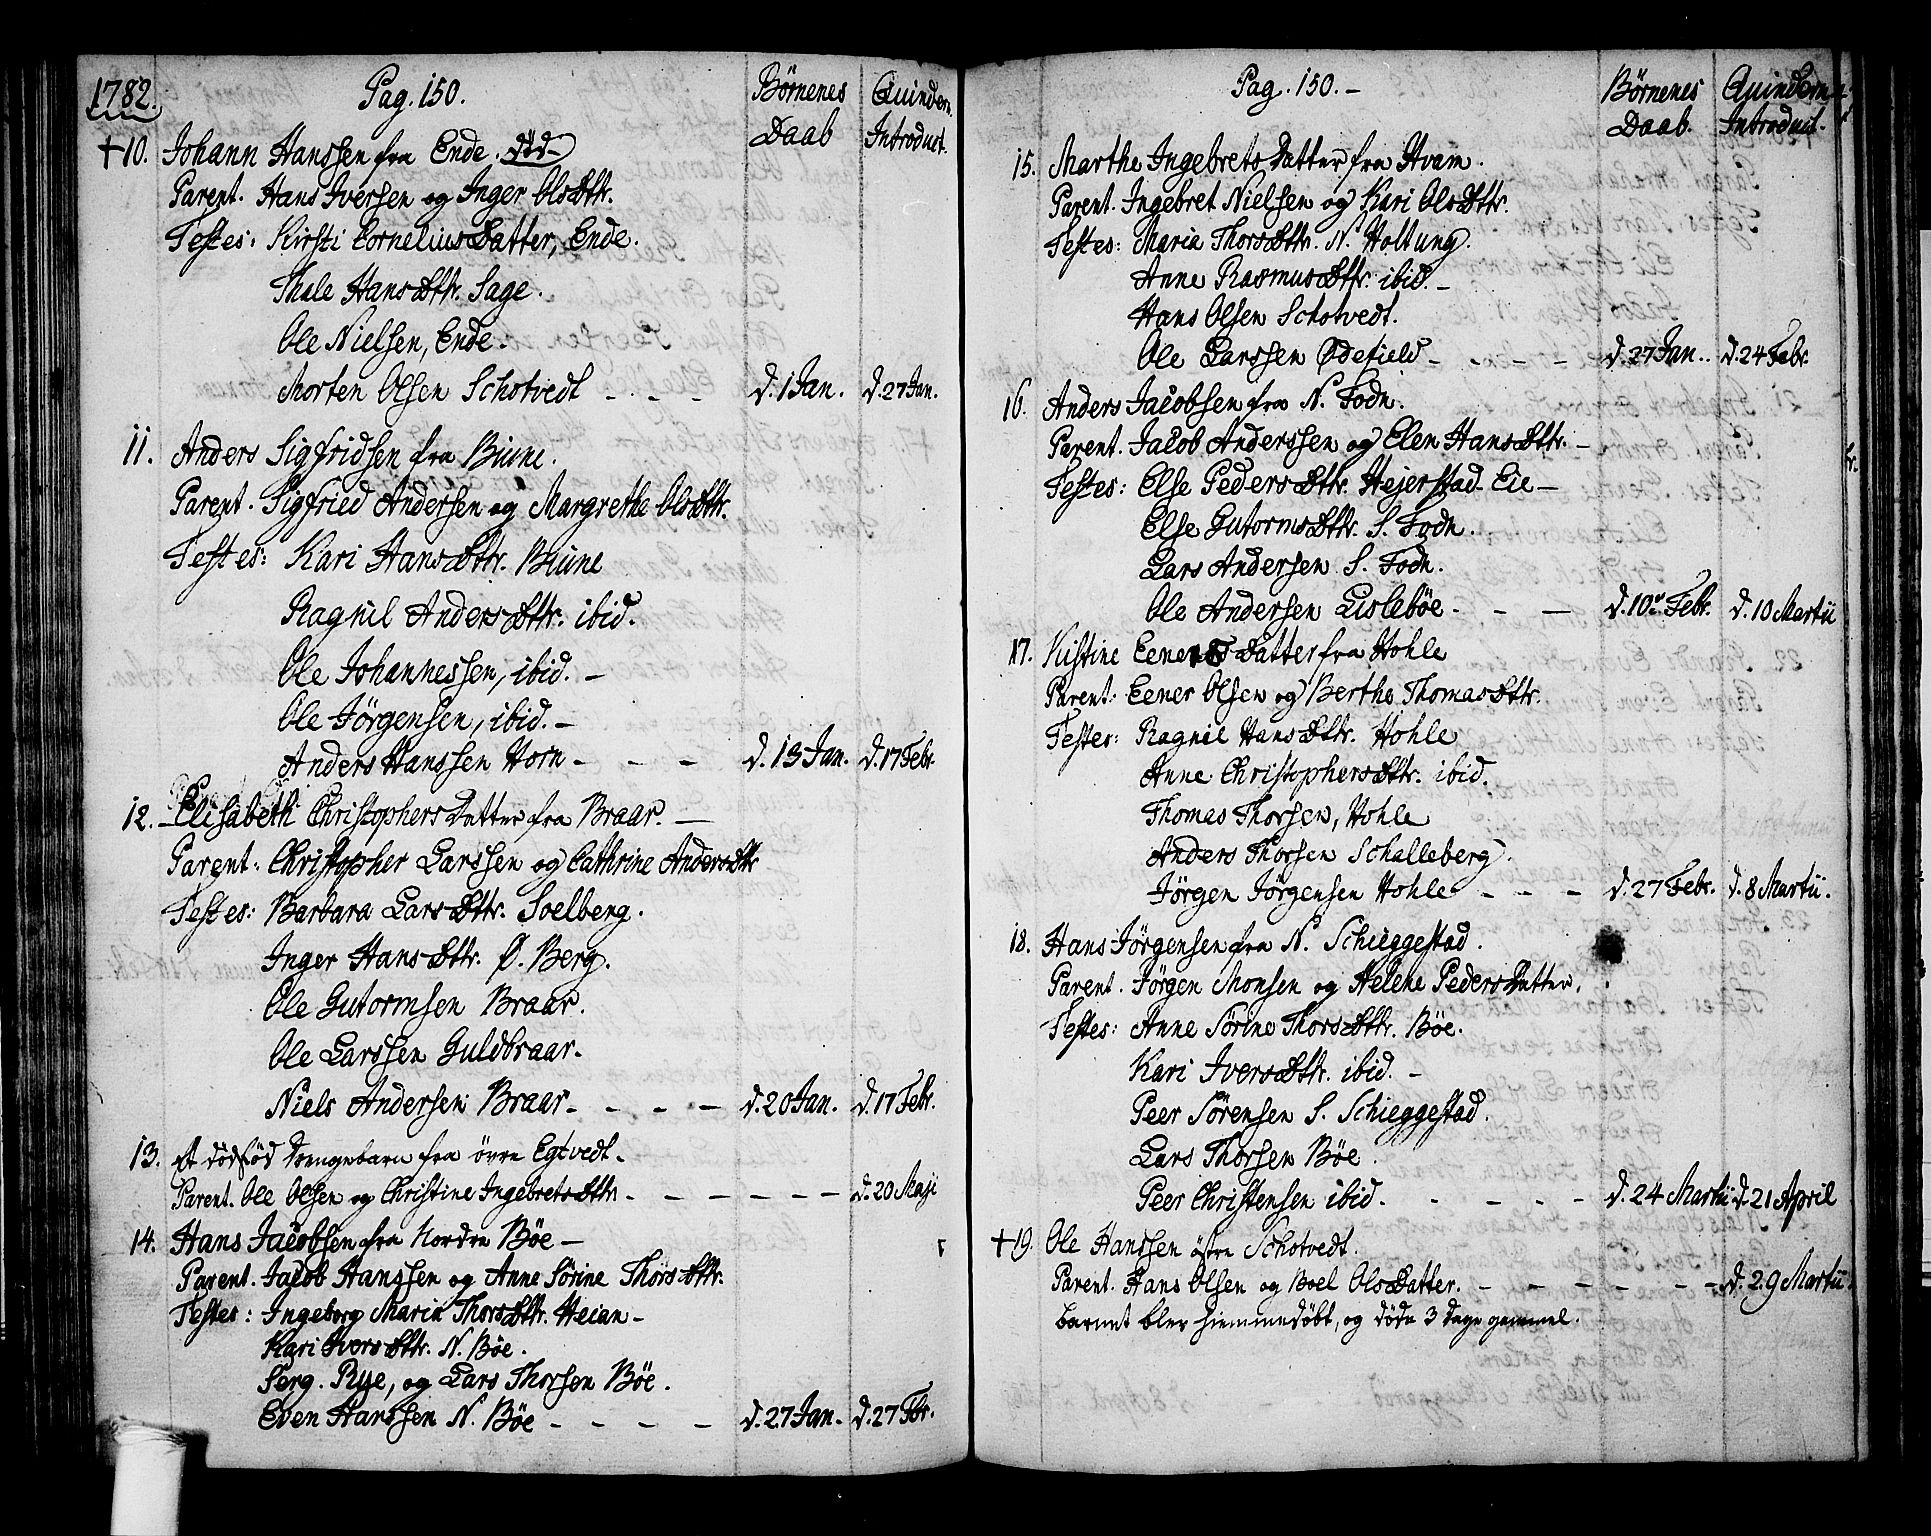 1782.
Pag. 150.
Børnenes Daab
Quindern. Introduct.
†10. Johann Hanssen fra Ende. død
Parent. Hans Iversen og Inger OlsDttr.
Testes: Kirsti CorneliusDatter, Ende.
Thale HansDttr. Sage.
Ole Nielsen, Ende.
Morten Olsen Schotvedt - - - d. 1 Jan. d. 27 Jan.
11. Anders Sigfridsen fra Biune.
Parent. Sigfried Andersen og Margrethe OlsDttr.
Testes: Kari HansDttr. Biune
Ragnil AndersDttr. ibid.
Ole Johannessen, ibid. -
Ole Jörgensen, ibid. -
Anders Hanssen Horn - - - d. 13 Jan. d. 17 Febr.
12. Elisabeth ChristophersDatter fra Braar. -
Parent. Christopher Larssen og Cathrine AndersDttr
Testes: Barbara LarsDttr. Soelberg.
Inger HansDttr. Ø. Berg.
Ole Gutormsen Braar.
Ole Larssen Guldbraar.
Niels Andersen Braar - - - - d. 20 Jan. d. 17 Febr.
13. et dödfød Drengebarn fra övre Egtvedt.
Parent. Ole Olsen og Christine IngebretsDttr - - - - - - d. 20 Maji
14. Hans Jacobsen fra Nordre Bøe -
Parent. Jacob Hanssen og Anne Sörine ThorsDttr.
Testes: Ingeborg Maria ThorsDttr. Heian -
Kari IversDttr. N. Bøe.
Serg. Rye, og Lars Thorsen Bøe.
Even Hanssen N. Bøe - - - - d. 27 Jan. d. 27 Fbr.
Pag. 150. -
Børnenes Daab.
Quindern. Introduct.
15. Marthe IngebretsDatter fra Hvam.
Parent. Ingebret Nielsen og Kari OlsDttr.
Testes: Maria ThorsDttr. N. Holtung.
Anne RasmusDttr. ibid. -
Hans Olsen Schotvedt.
Ole Larssen Ødefield - - - - d. 27 Jan. d. 24 Febr.
16. Anders Jacobsen fra N. Fodn.
Parent. Jacob Anderssen og Elen HansDttr. -
Testes: Else PedersDttr. Hejerstad Eie -
Else GutormsDttr. S. Fodn.
Lars Andersen S. Fodn.
Ole Andersen Lislebøe - - - d. 10 Febr. d. 10 Martii
17. Kistine EenersDatter fra Hohle
Parent: Eener Olsen og Berthe ThomasDttr.
Testes: Ragnil HansDttr. Hohle
Anne ChristophersDttr. ibid.
Thomas Thorsen, Hohle
Anders Thorsen Schalleberg.
Jörgen Jörgensen Hohle - - - d. 27 Febr. d. 8 Martii.
18. Hans Jörgensen fra N. Schieggestad.
Parent. Jörgen Monsen og Helene PedersDatter.
Testes: Anne Sörine ThorsDttr. Bøe.
Kari IversDttr. ibid. -
Peer Sörensen S. Schieggestad.
Lars Thorsen Bøe.
Peer Christensen ibid. - - - - d. 24 Martii d. 21 April
†19. Ole Hanssen östre Schotvedt.
Parent. Hans Olsen og Boel OlsDatter. - - - - - - d. 29 Martii.
barnet blev hiemmedöbt, og döde 3 Dage gammel.